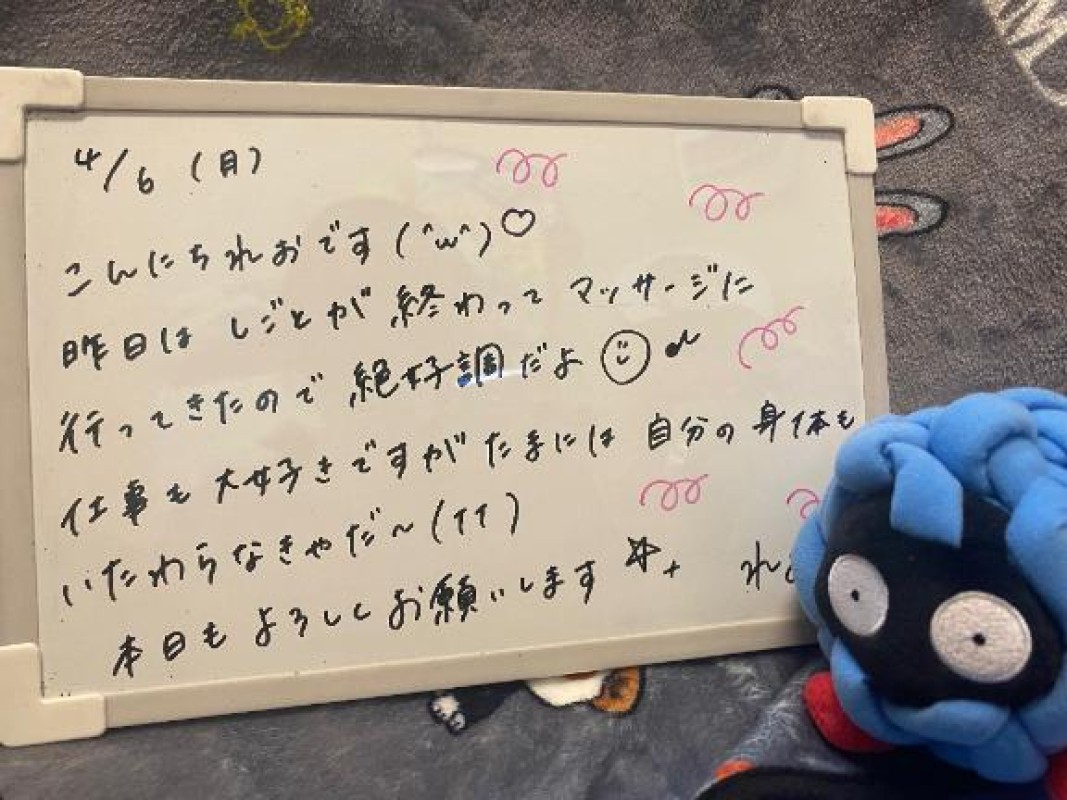 4/6 (月)
こんにちれおです(^w^)♡
昨日はしごとが終わってマッサージに
行ってきたので絶好調だよ☺♪
仕事も大好きですがたまには自分の身体も
いたわらなきゃだ〜(TT)
本日もよろしくお願いします☆+